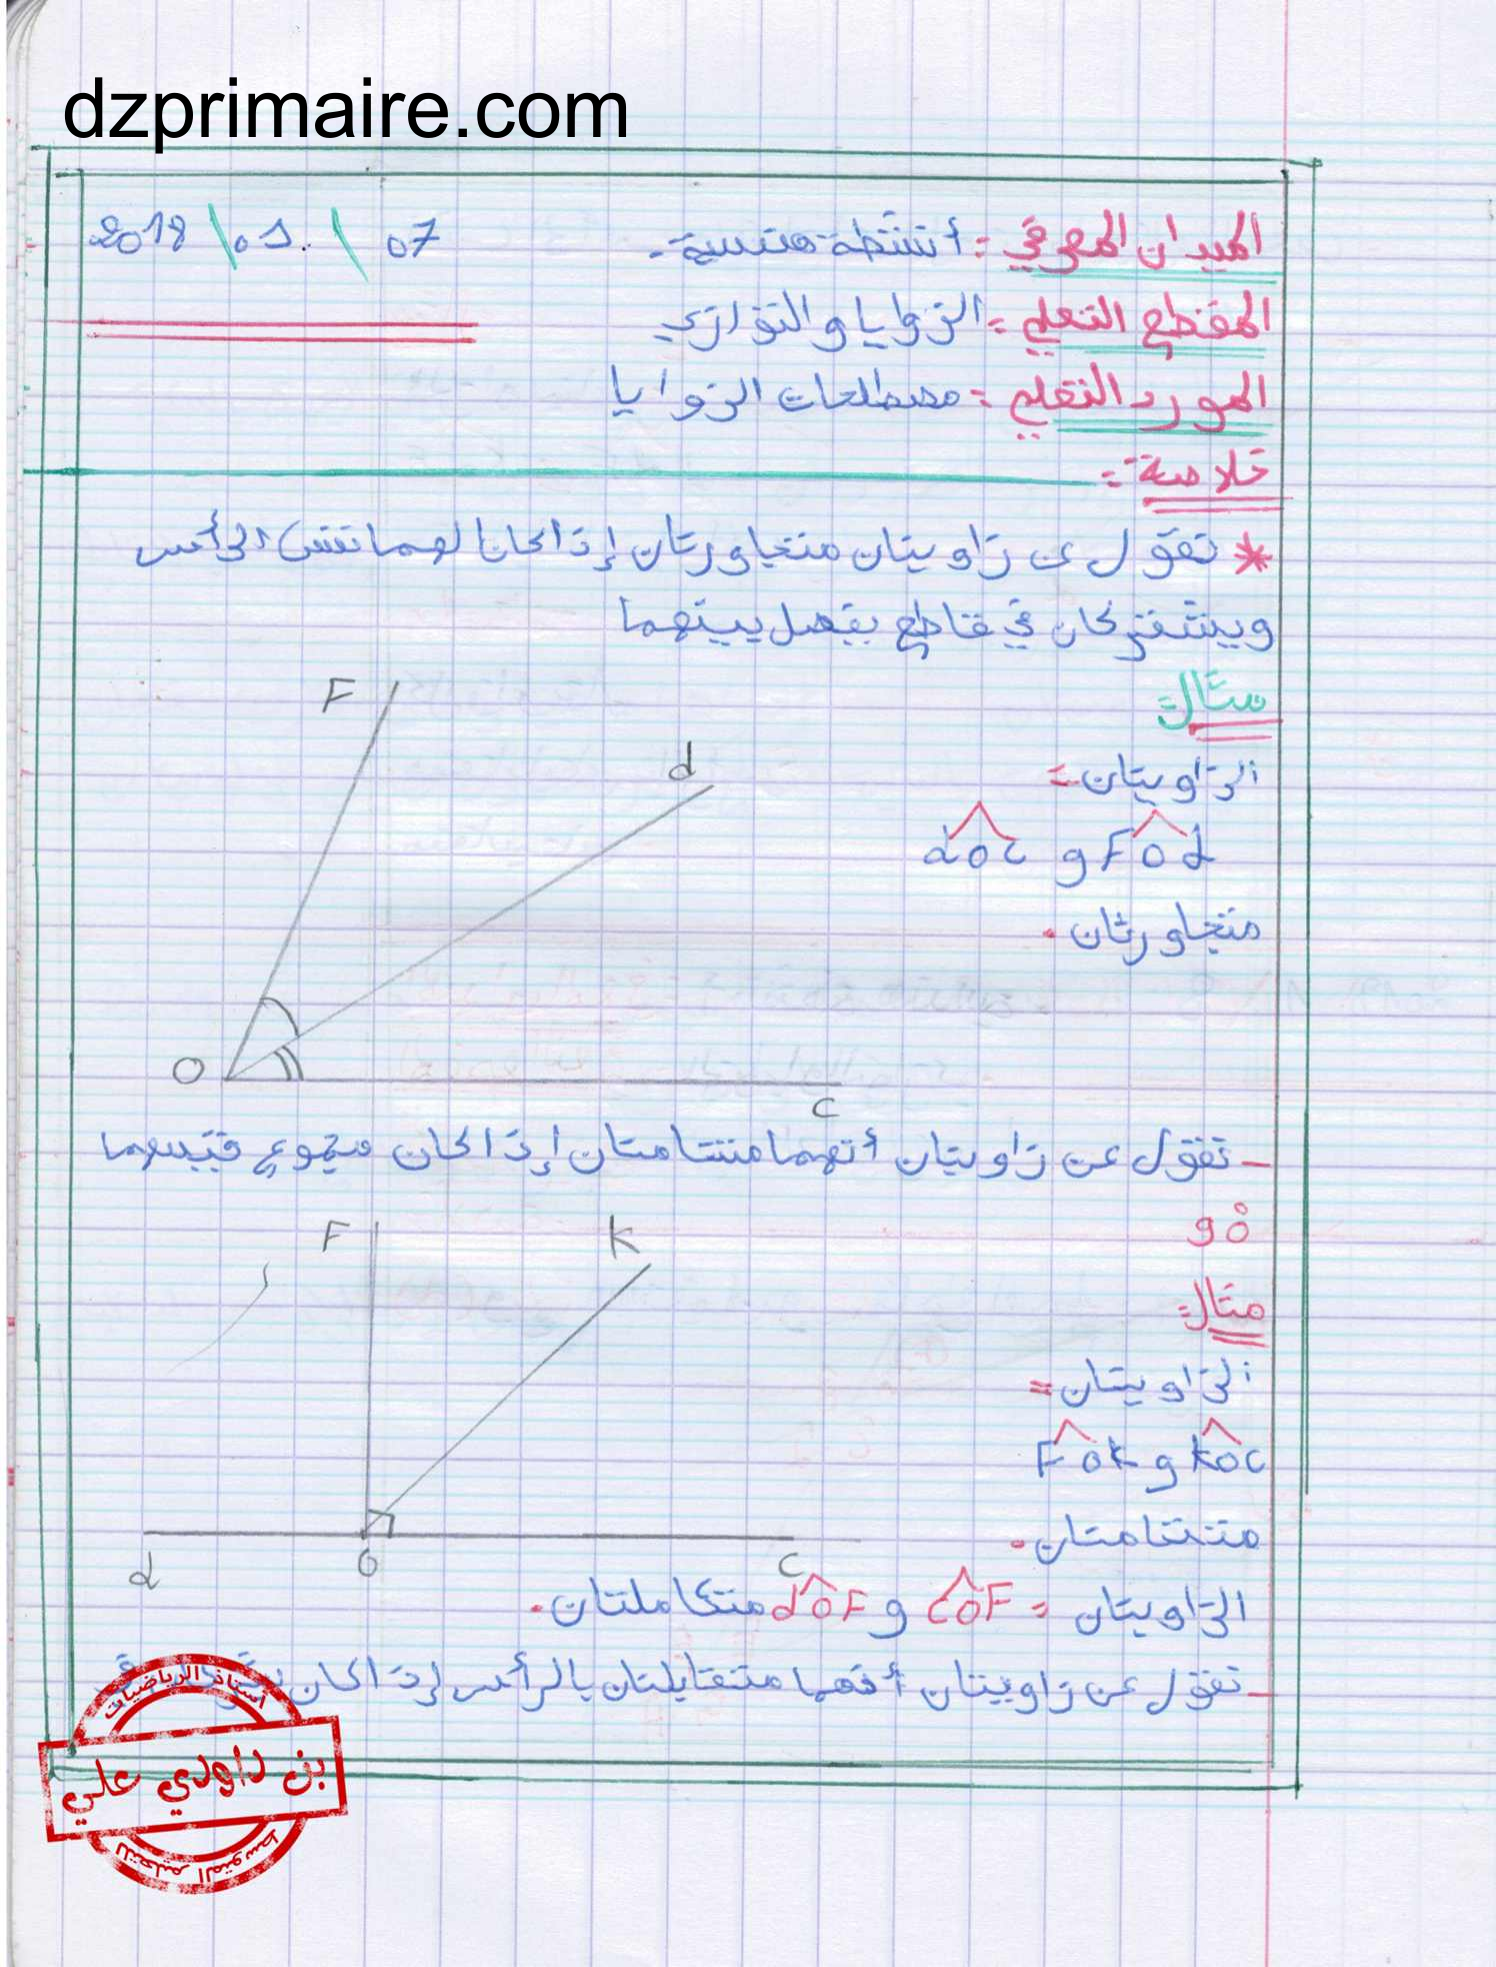 dzprimaire.com
الميدان المعرفي : أنشطة هندسية . 07 / 01 / 2018
المقطع التعلمي : الزوايا والتوازي
المورد التعلمي : مصطلحات الزوايا
خلاصة :
* نقول عن زاويتان متجاورتان إذا كانا لهما نفس الرأس
ويشتركان في قاطع يفصل بينهما
مثال :
الزاويتان :
FOd و dOC
متجاورتان .
F
d
O
C
- نقول عن زاويتان أنهما متتامتان إذا كان مجموع قيسهما
90°
مثال :
الزاويتان :
KOC و FOK
متتامتان .
F
K
d
O
C
الزاويتان : COF و dOF متكاملتان .
- نقول عن زاويتان أنهما متقابلتان بالرأس إذا كان
أستاذ الرياضيات
بن داودي علي
للتعليم المتوسط